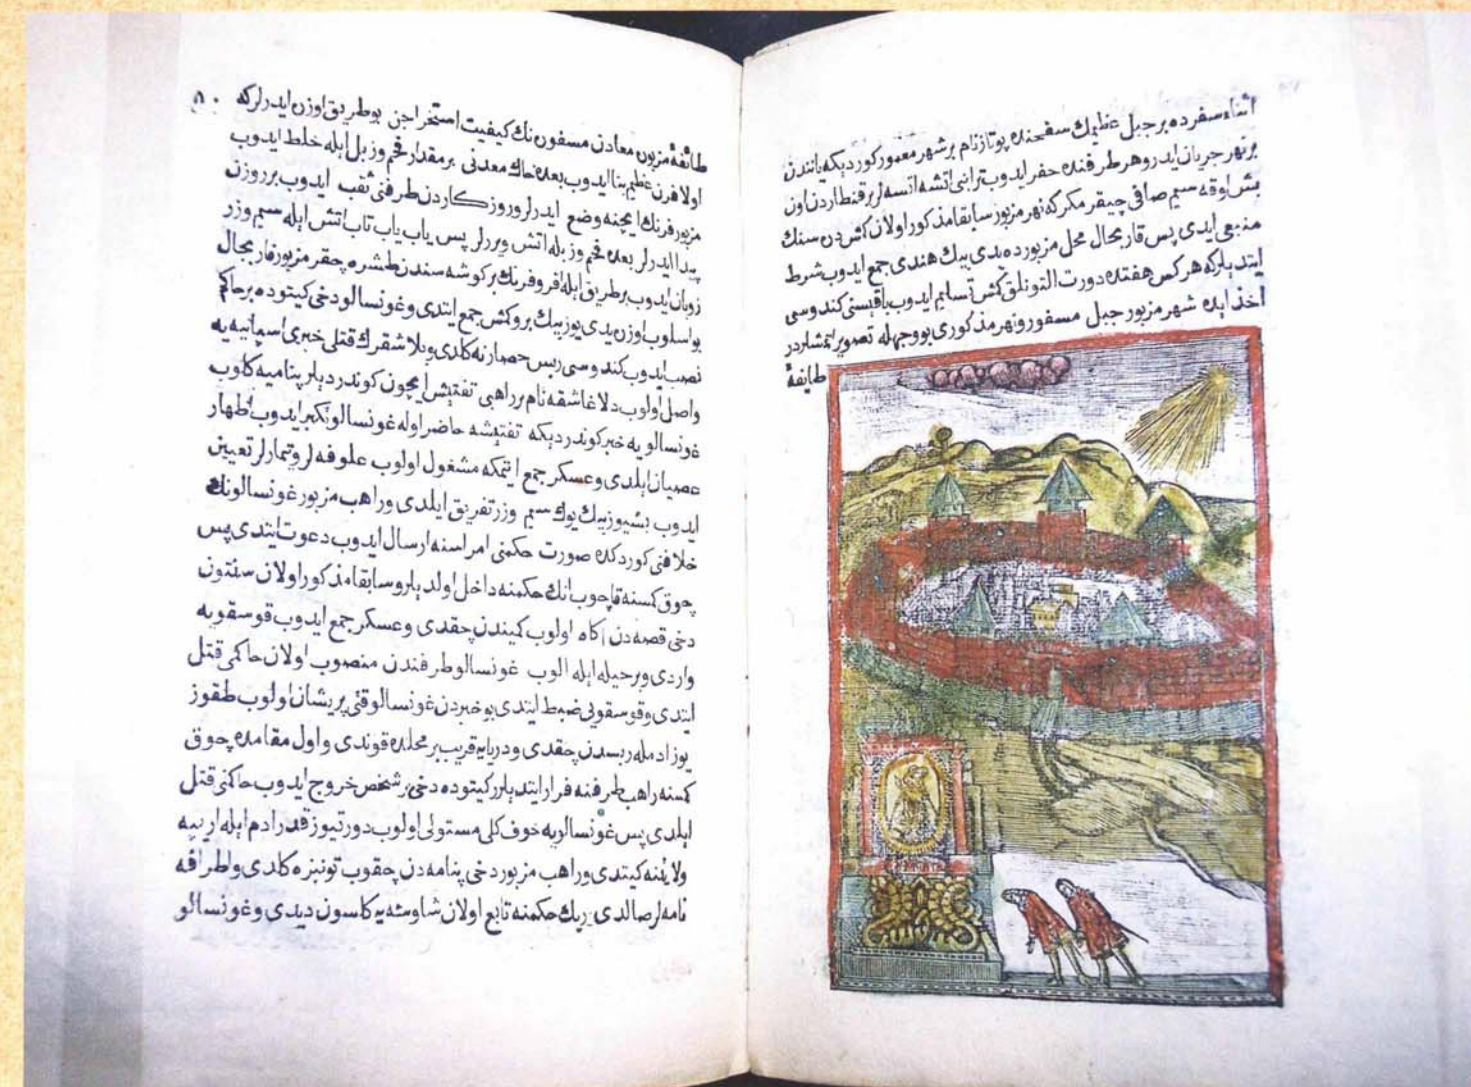 اثناء سفرده بر جبل عظيمك سفحنده پوتاز نام بر شهر معمور كورديكه ياننده
بر نهر جريان ايدر و هر طرفنده حفر ايدوب ترابنى اتشه اتسه لر بر قنطاردن اون
بش اوقه سيم صافى چيقر مكر كه نهر مزبور سابقا مذكور اولان كش دن سنك
منبعى ايدى پس قار بحال محل مزبورده يدى بيك هندى جمع ايدوب شرط
ايتديلركه هر كس هفته ده دورت التونلق كش تسليم ايدوب باقيسنى كندوسى
اخذ ايده شهر مزبور جبل مسفور و نهر مذكورى بو وجهله تصوير اتمشلردر
طايفهٔ
٨٠
طائفهٔ مزبوره معادن مسفوره نك كيفيت استخراجن بو طريق اوزره ايدرلركه
اولا فرن عظيم بنا ايدوب بعده خاك معدنى بر مقدار فحم و زبل ايله خلط ايدوب
مزبور فرنك ايچنه وضع ايدرلر و روزكاردن طرفنى ثقب ايدوب بر روزن
پيدا ايدرلر بعده فحم و زبله اتش ويررلر پس ياب ياب تاب اتش ايله سيم و زر
زوبان ايدوب بر طريق ايله اقر و فرنك بر كوشه سندن طشره چقر مزبور قار بحال
بو اسلوب اوزره يدى يوز بيك بروكش جمع ايتدى و غونسالو دخى كيتوده بر حاكم
نصب ايدوب كندوسى ريس حصارنه كلدى و بلاشقرك قتلى خبرى اسپانيه يه
واصل اولوب دلاغاشقه نام بر راهبى تفتيش ايچون كوندرديلر پناميه كلوب
غونسالويه خبر كوندرديكه تفتيشه حاضر اوله غونسالو تكبر ايدوب اظهار
عصيان ايلدى و عسكر جمع ايتمكه مشغول اولوب علوفه لر و تيمارلر تعيين
ايدوب بشيوز بيك يوك سيم و زر تفريق ايلدى و راهب مزبور غونسالونك
خلافنى كوردكده صورت حكمنى امراسنه ارسال ايدوب دعوت ايتدى پس
چوق كسنه قاچوب انك حكمنه داخل اولديلر و سابقا مذكور اولان سنتون
دخى قصه دن اكاه اولوب كيندن چقدى و عسكر جمع ايدوب قوسقويه
واردى و بر حيله ايله الوب غونسالو طرفندن منصوب اولان حاكمى قتل
ايتدى و قوسقويى ضبط ايتدى بو خبردن غونسالو قتى پريشان اولوب طقوز
يوز ادمله ريسدن چقدى و دريايه قريب بر محلده قوندى و اول مقامده چوق
كمسنه راهب طرفنه فرار ايتديلر كيتوده دخى بر شخص خروج ايدوب حاكمنى قتل
ايلدى پس غونسالويه خوف كلى مستولى اولوب دورتيوز قدر ادم ايله
ولايتنه كيتدى و راهب مزبور دخى پنامه دن چقوب تونبزه كلدى و اطرافه
نامه لر صالدى حكمنه تابع اولان يه كلسون ديدى و غونسالو